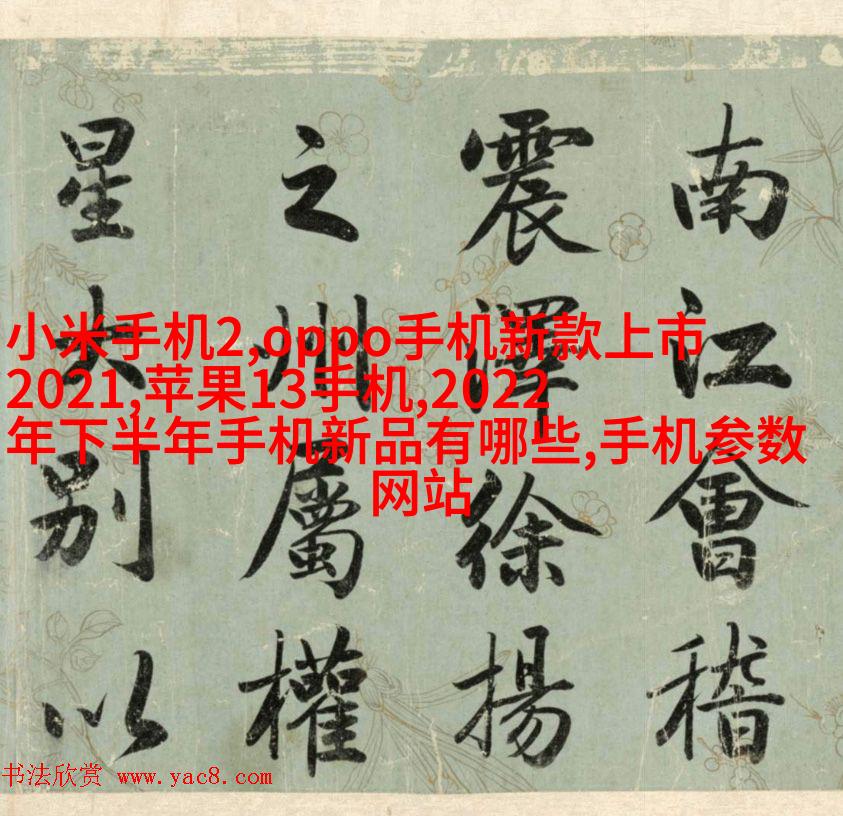 南江會稽
震澤徐揚
之州屬權
星大別以
小米手机2,oppo手机新款上市
2021,苹果13手机,2022
年下半年手机新品有哪些,手机参数
网站
书法欣赏 www.yac8.com